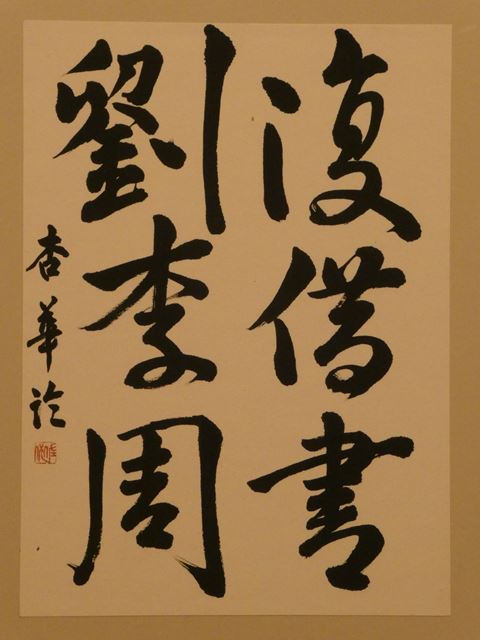 復借書
劉李周
杏華